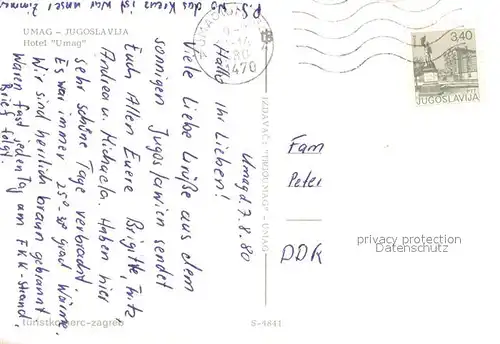 P.S. Wo das Kreuz ist war unser Zimmer
UMAG – JUGOSLAVIJA
Hotel "Umag"
Umag d. 7.8.80
Hallo Ihr Lieben!
Viele Liebe Grüße aus dem
sonnigen Jugoslawien sendet
Euch Allen Euere Brigitte, Fritz
Andrea u. Michaela. Haben hier
sehr schöne Tage verbracht.
Es war immer 25°-30 grad Wärme.
Wir sind herrlich braun gebrannt.
Waren fast jeden Tag am FKK-Strand.
Brief folgt.
turistkomerc-zagreb
S-4841
IZDAVAČ: "JUGOLIST" – UMAG
UMAG
80
3.40
JUGOSLAVIJA
Fam
Peter
DDR
privacy protection
Datenschutz